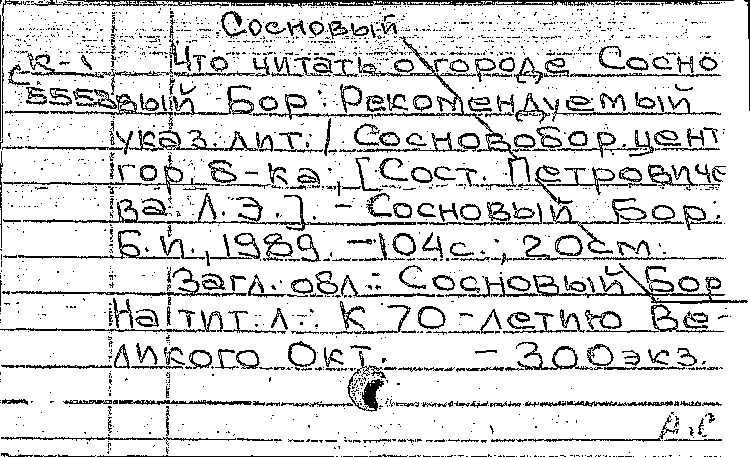 Сосновый
К-1 Что читать о городе Сосно
5558 вый Бор: Рекомендуемый
указ. лит. / Сосновобор. цент
гор. б-ка; [Сост. Петровиче
ва Л.Э.]. - Сосновый Бор:
Б.и., 1989. - 104 с.; 20 см.
Загл. обл.: Сосновый Бор
На тит. л.: К 70-летию Ве-
ликого Окт. - 300 экз.